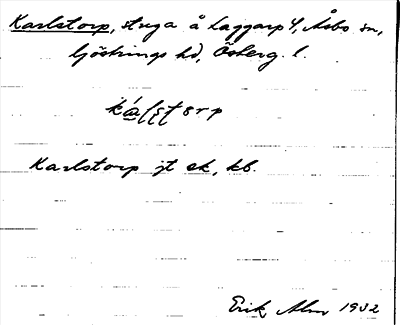 Karlstorp, stuga å Laggarp 4, Åsbo sn,
Göstrings hd, Österg. l.
Karlstorp jt ek, kb.
Erik Alm 1932